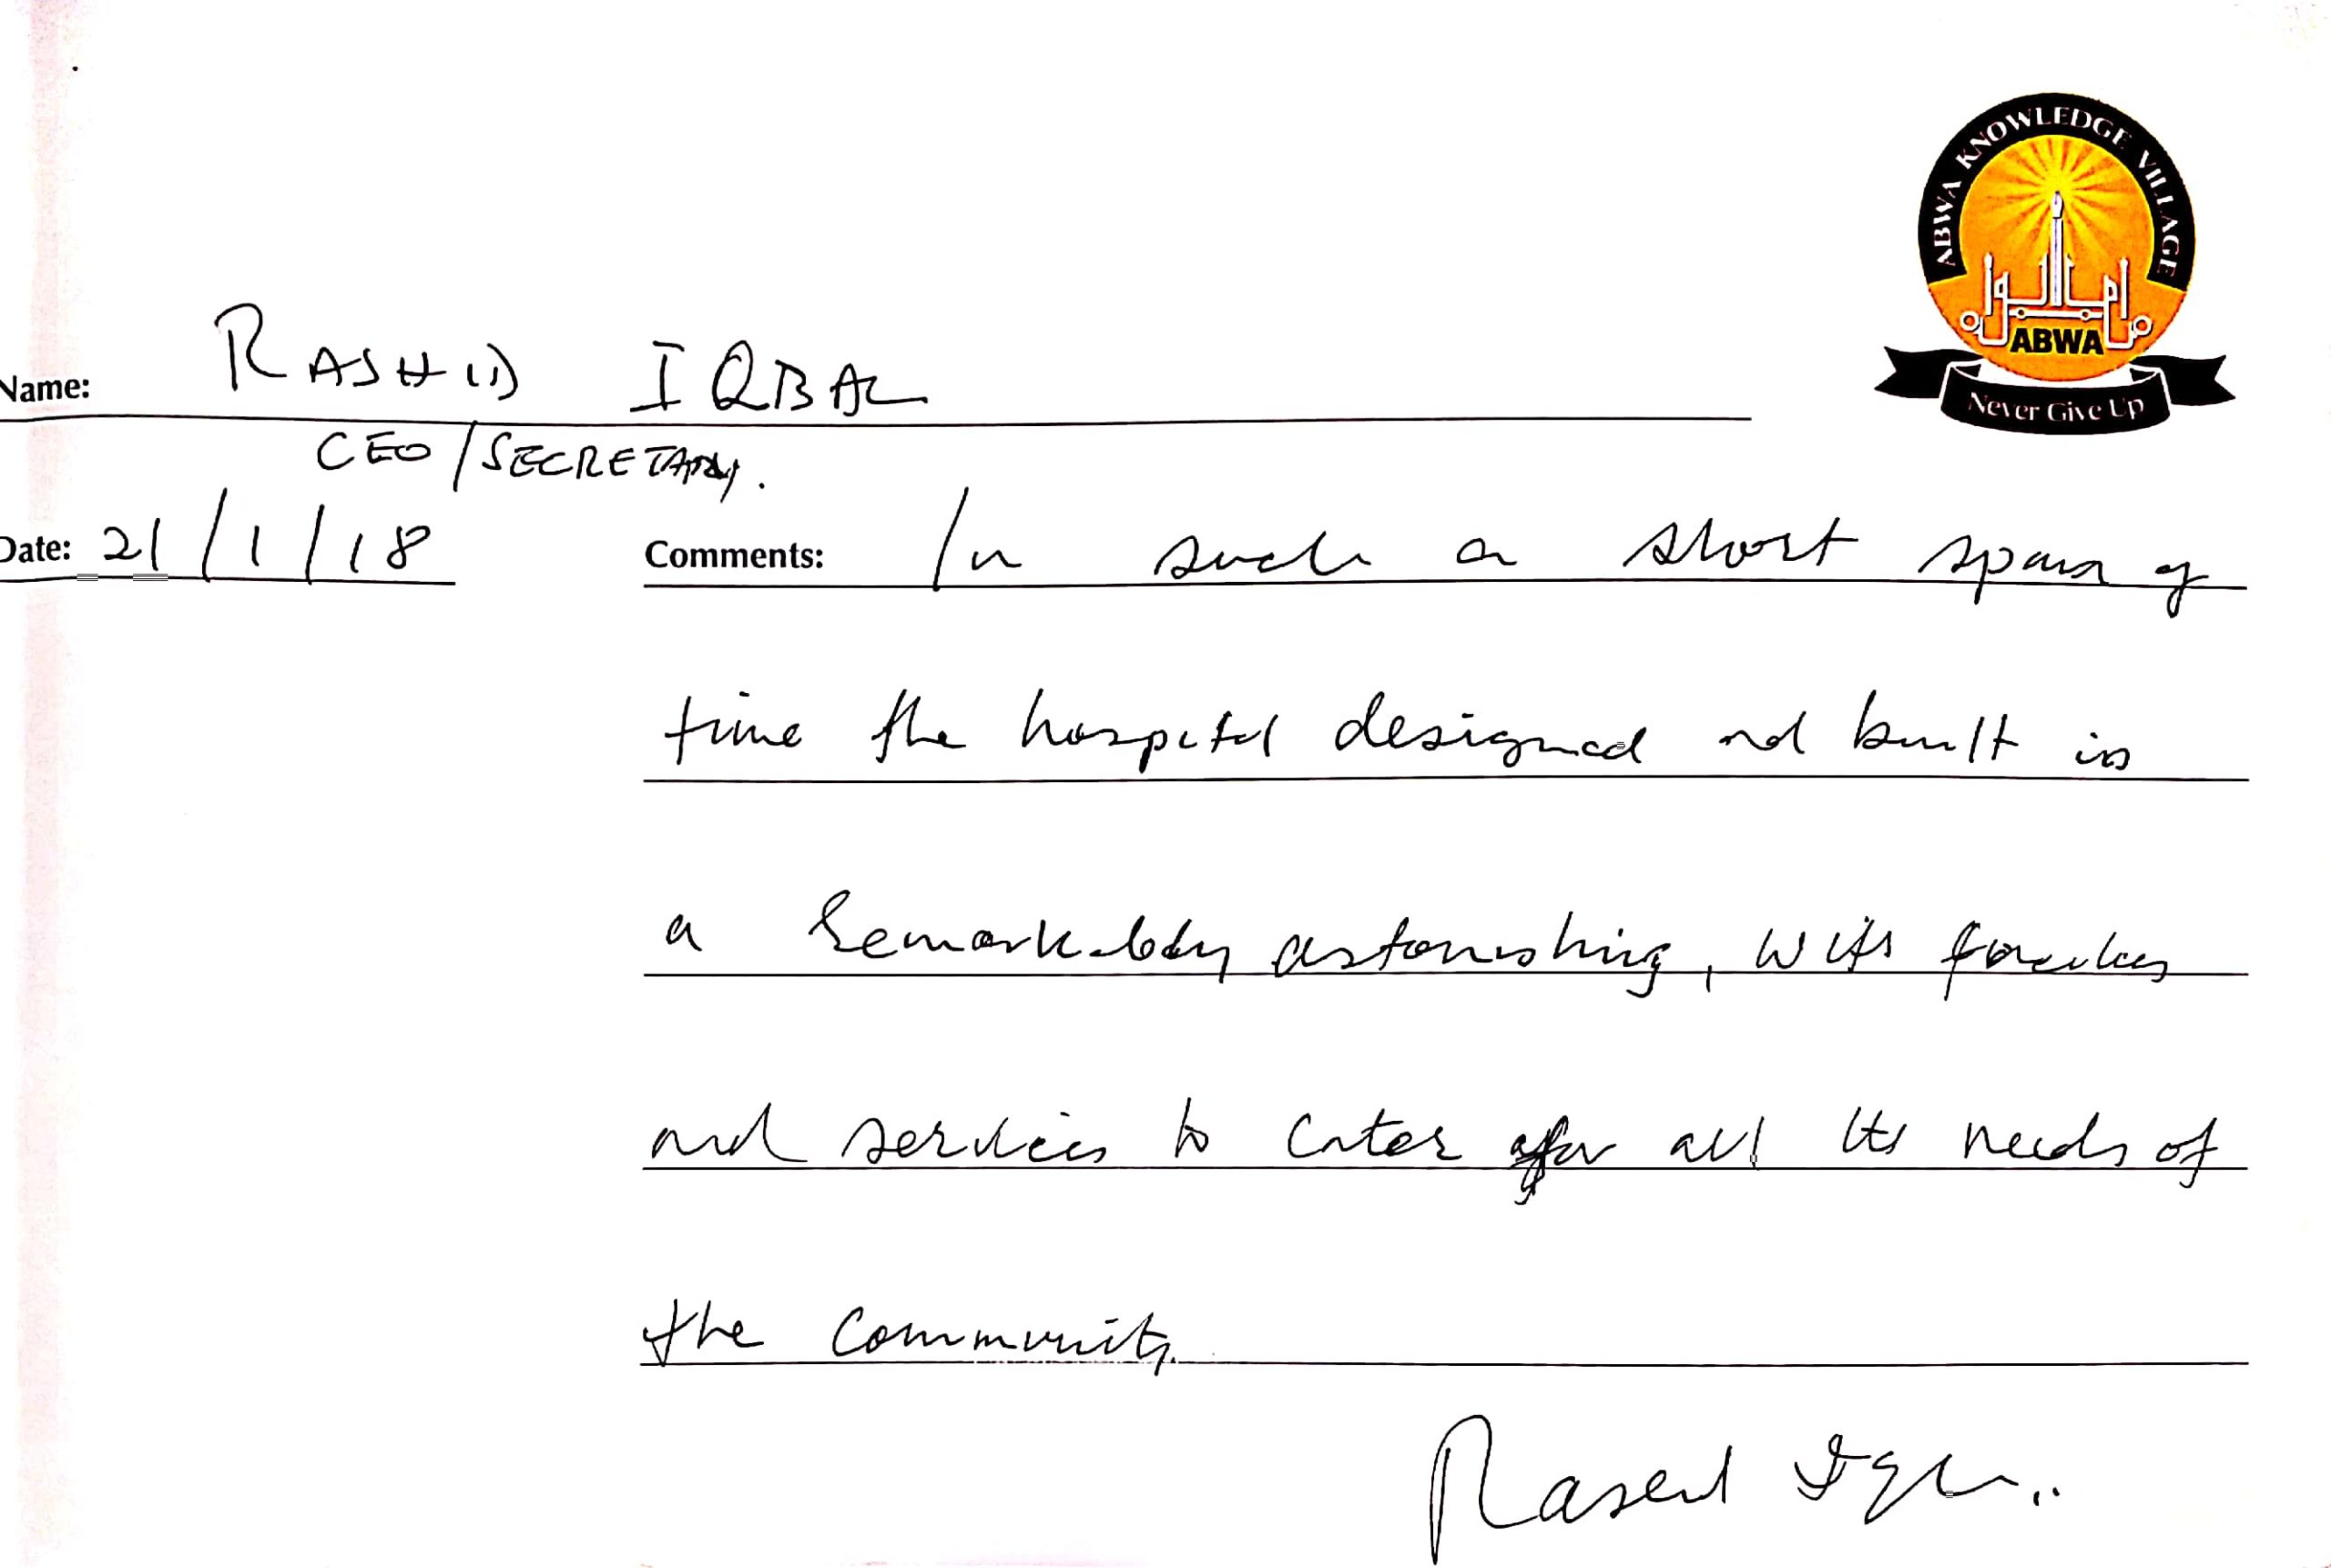 ABWA KNOWLEDGE VILLAGE
ABWA
Never Give Up
Name: RASHID IQBAL
CEO/SECRETARY.
Date: 21/1/18
Comments: In such a short span of
time the hospital designed and built is
a remarkably astonishing, with
and services to cater for all its needs of
the community.